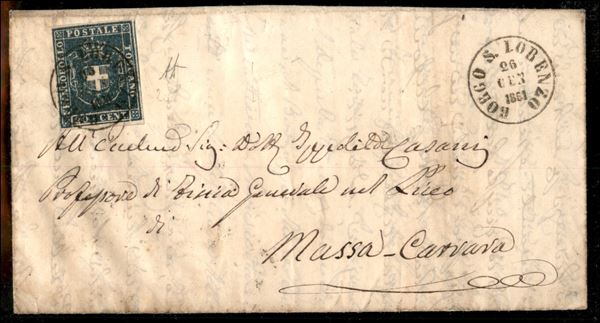 FRANCOBOLLO POSTALE TOSCANO
20 CENT
BORGO S. LORENZO
26
GEN
1861
All' Sig: Casanj
Professore di Fisica Generale nel Liceo
di
Massa-Carrara